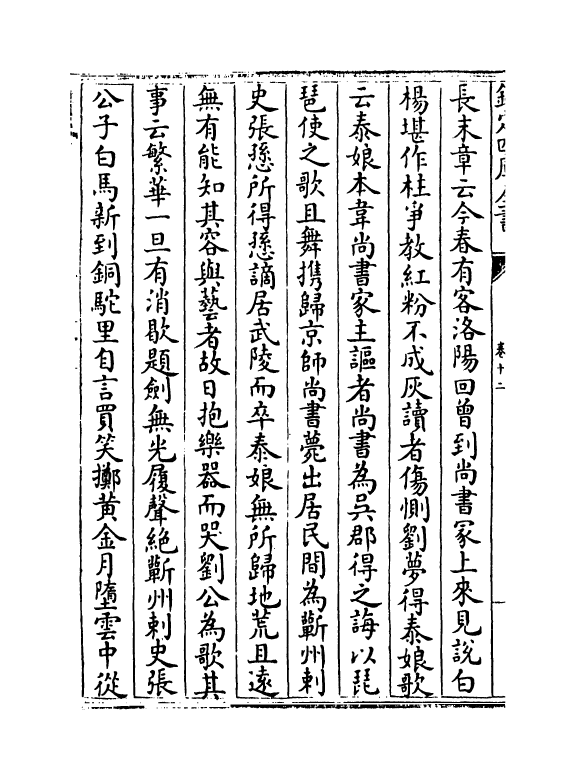 欽定四庫全書
卷十二
長末章云今春有客洛陽回曾到尚書冢上來見說白
楊堪作柱爭教紅粉不成灰讀者傷惻劉夢得泰娘歌
云泰娘本韋尚書家主謳者尚書為吳郡得之誨以琵
琶使之歌且舞携歸京師尚書薨出居民間為蘄州刺
史張愻所得愻謫居武陵而卒泰娘無所歸地荒且遠
無有能知其容與藝者故日抱樂器而哭劉公為歌其
事云繁華一旦有消歇題劍無光履聲絶蘄州刺史張
公子白馬新到銅駝里自言買笑擲黄金月墮雲中從